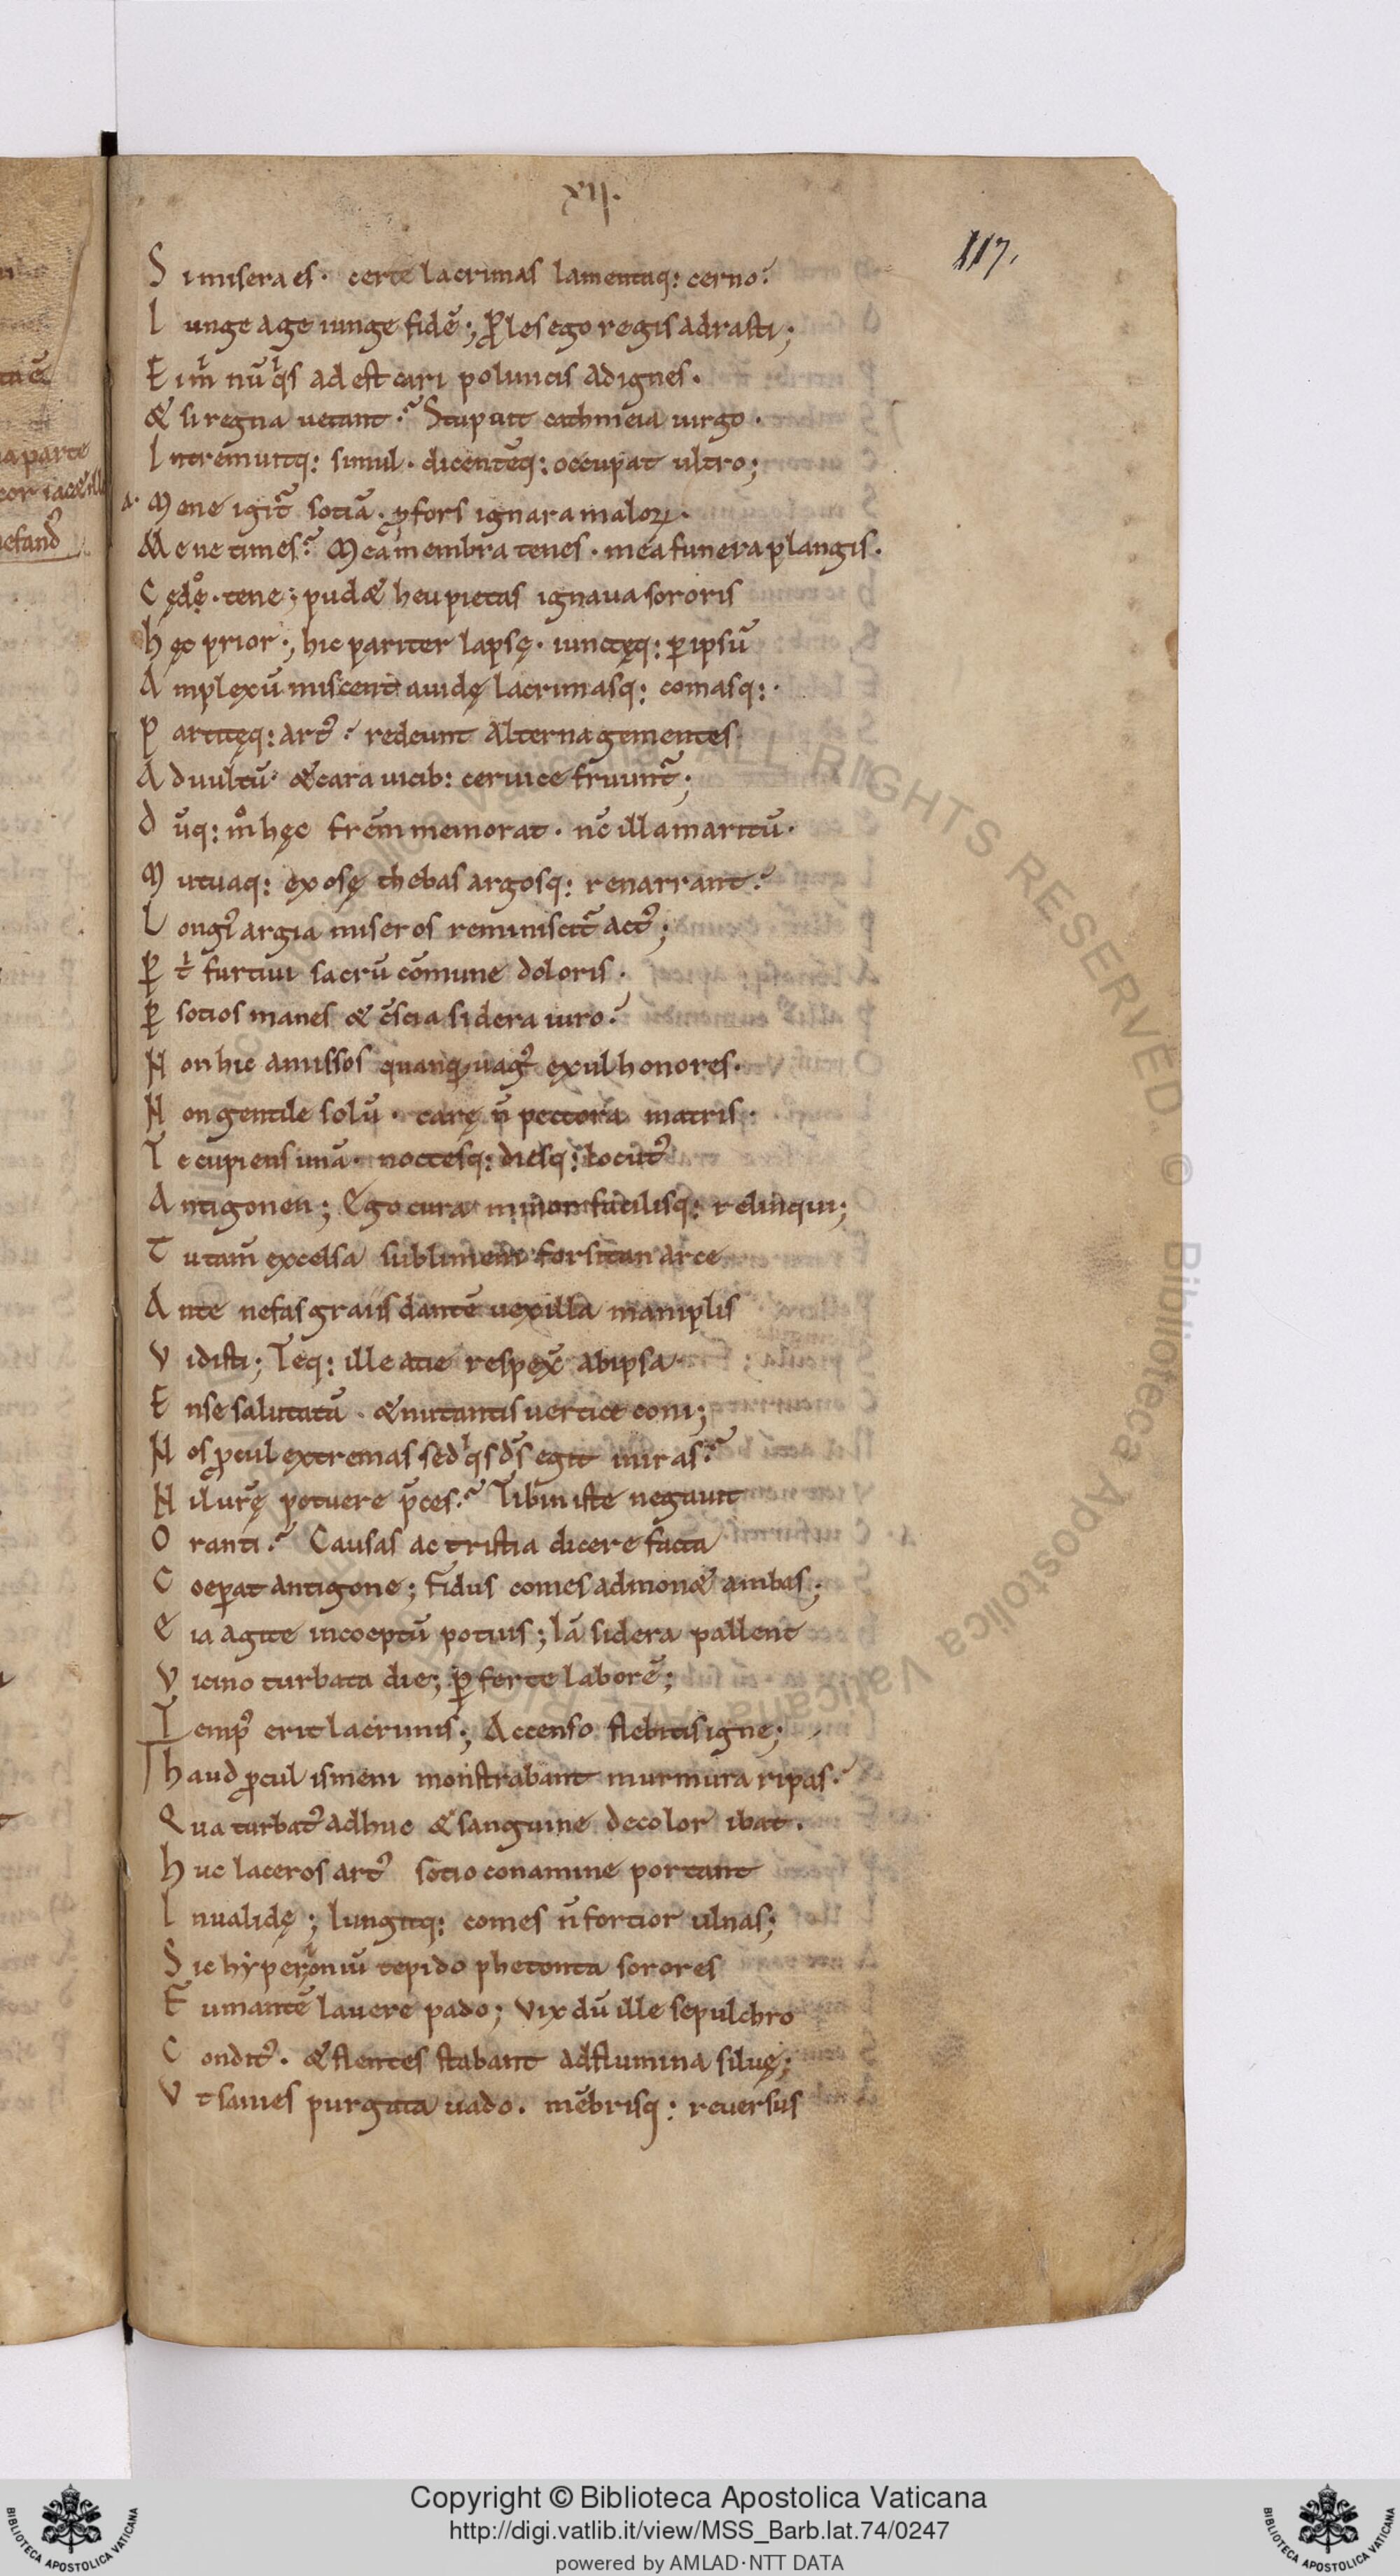 xii.
117.
S i misera es · certe lacrimas lamentaq: cerno?
I unge age iunge fidē; ꝓles ego regis adrasti;
E i m̄ nū q̍s adest cari polinicis ad ignes.
& si regna uetant? Stupuit cathmeia uirgo.
I ntremuitq: simul · dicentēq: occupat ultro;
a. Mene igit̄ sotiā · ꝓ fors ignara maloꝝ.
Me ne times? Mea membra tenes · mea funera plangis.
C ędo · tene; pud& heu pietas ignaua sororis
h ęc prior; hic pariter lapsę · iunctęq: ꝑ ipsū
A mplexū miscent auidę lacrimasq: comasq: ·
P artitęq: art᾽ redeunt alterna gementes
A d uultū · & cara uicib: ceruice fruunt̄;
d ūq: m̊ hęc fr̄em memorat · nc̄ illa maritū·
M utuaq: exosę thebas argosq: renarrant?
L ongi᾽ argia miseros reminiscit̄ act᾽;
ꝑ t̍ furtiui sacrū cōmune doloris.
ꝑ sotios manes & c̄scia sidera iuro?
N on hic amissos quanq̄ uag᾽ exul honores.
N on gentile solū · carę n̄ pectora matris·
T e cupiens unā · noctesq: diesq: locut᾽
A ntigonen; Ego cura minor facilisq: relinqui;
T u tam̄ excelsa sublimem forsitan arce
A nte nefas graiis dantē uexilla maniplis
V idisti; Teq: ille acie respex̄ ab ipsa
E nse salutatū · & nutantis uertice coni;
N os ꝓcul extremas sed q̍s d̄s egit in iras?
N il urę̄ potuere p̄ces? Tibin iste negauit
O ranti? Causas ac tristia dicere facta
C oeꝑat antigone; Fidus comes admon& ambas;
E ia agite incoeptū potius; Iā sidera pallent
V icino turbata die; ꝑferte laborē;
T emp᾽ erit lacrimis; Accenso flebitis igne;
h aud ꝓcul ismeni monstrabant murmura ripas·
Q ua turbat᾽ adhuc & sanguine decolor ibat.
h uc laceros art᾽ sotio conamine portant
I nualidę; Iungitq: comes n̄ fortior ulnas;
S ic hẏperioniū tepido phetonta sorores
F umantē lauere pado; Vix dū ille sepulchro
C ondit᾽. & flentes stabant ad flumina siluę;
V t sanies purgata uado. mēbrisq: reuersus
Copyright © Biblioteca Apostolica Vaticana
http://digi.vatlib.it/view/MSS_Barb.lat.74/0247
powered by AMLAD·NTT DATA